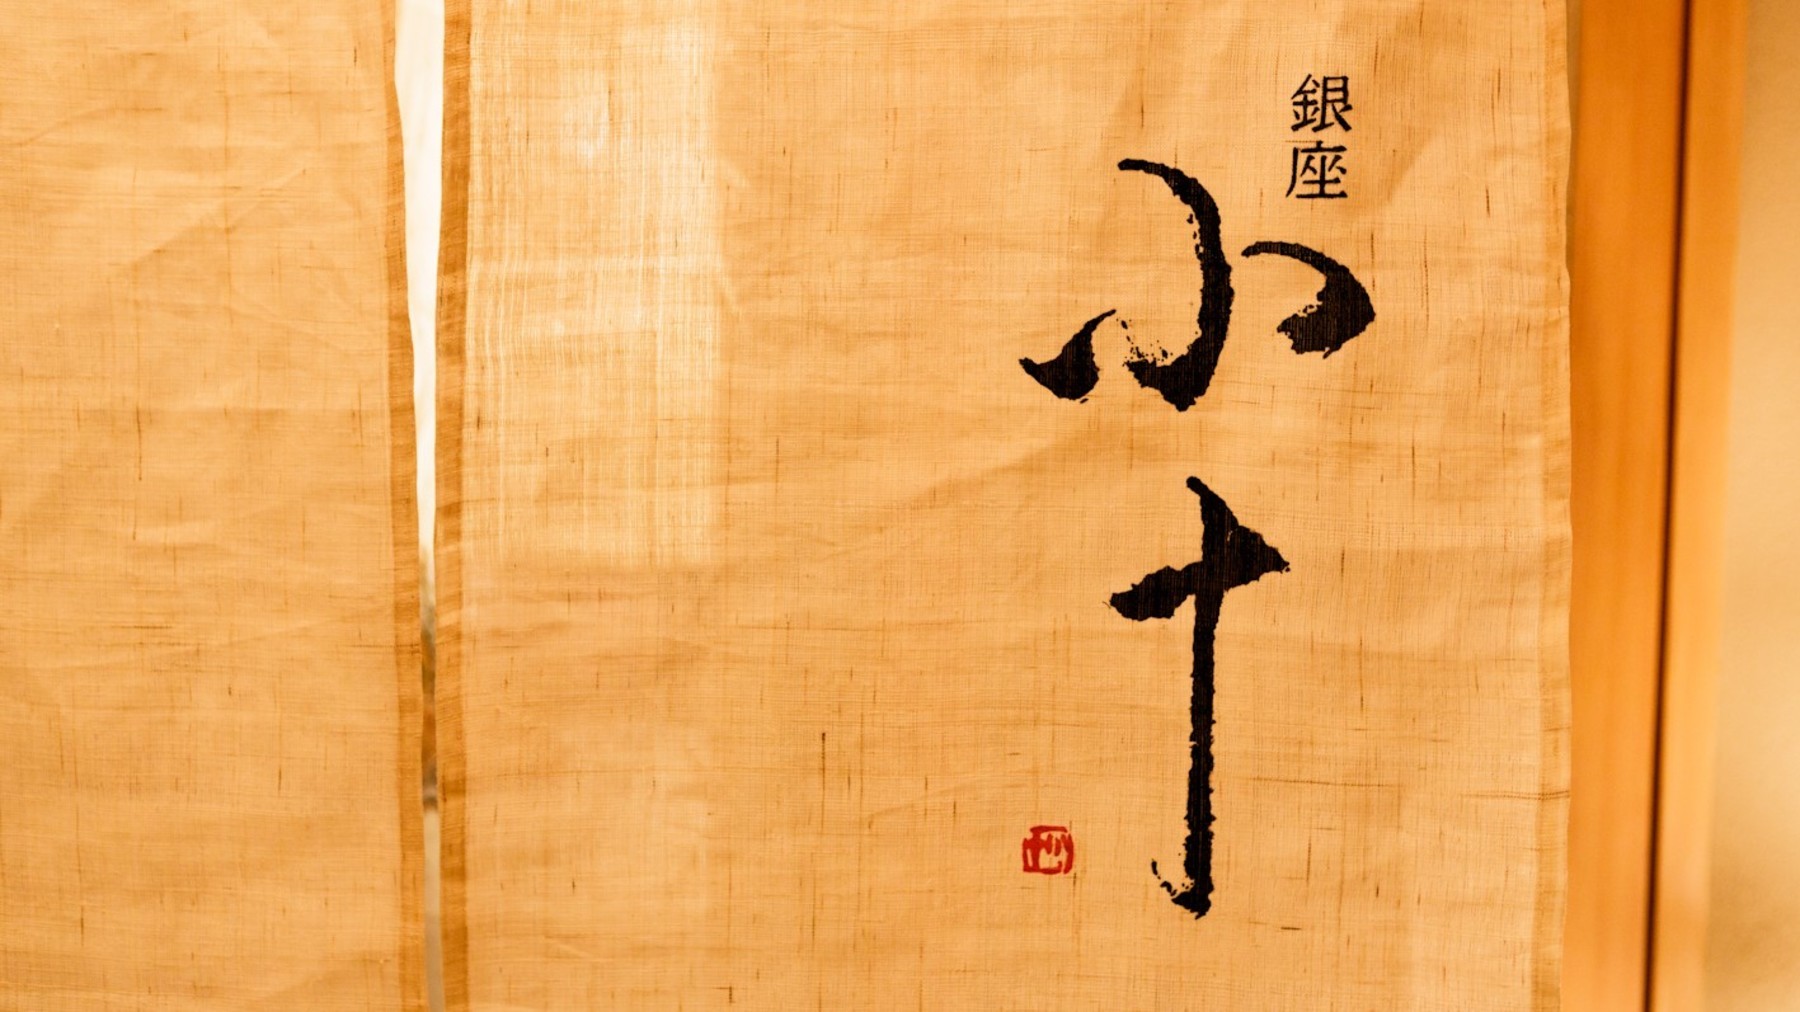 銀座
小十